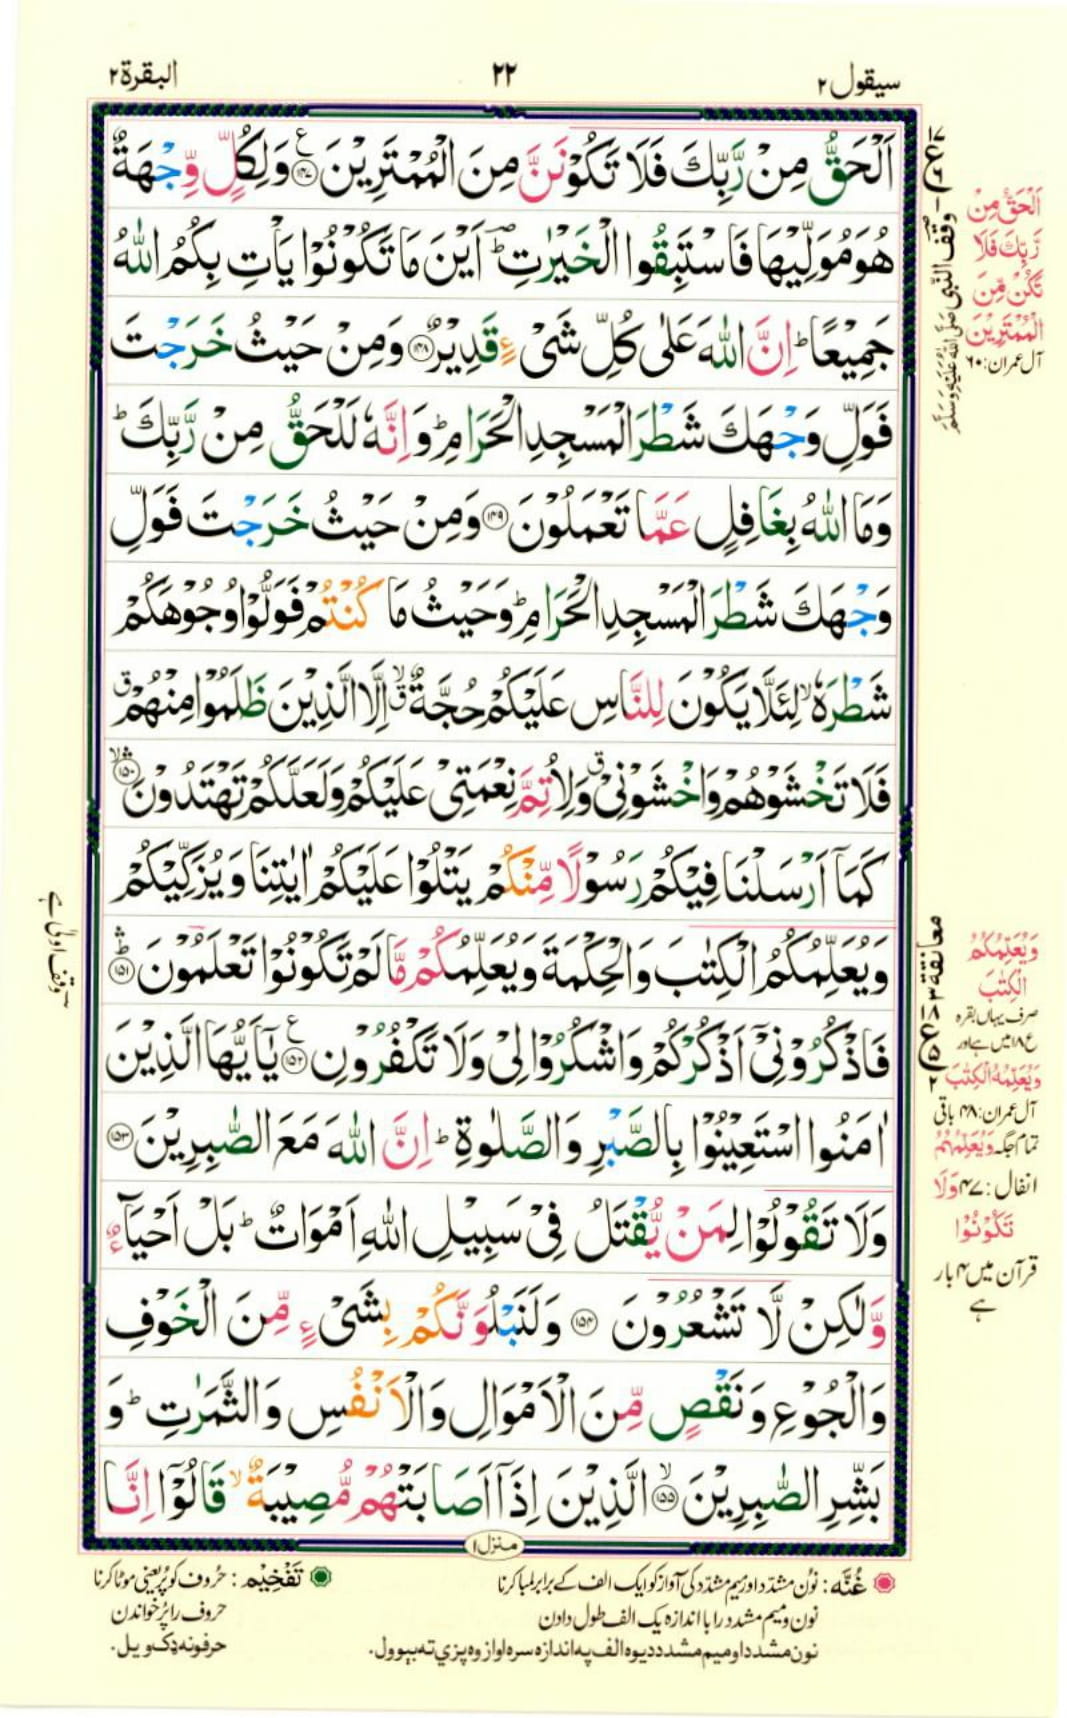 سیقول ۲
۲۲
البقرۃ ۲
اَلْحَقُّ مِنْ رَّبِّكَ فَلَا تَكُوْنَنَّ مِنَ الْمُمْتَرِيْنَ ﴿۱۴۷﴾ ع وَلِكُلٍّ وِّجْهَةٌ
هُوَ مُوَلِّيْهَا فَاسْتَبِقُوا الْخَيْرٰتِ ؕ اَيْنَ مَا تَكُوْنُوْا يَاْتِ بِكُمُ اللّٰهُ
جَمِيْعًا ؕ اِنَّ اللّٰهَ عَلٰى كُلِّ شَىْءٍ قَدِيْرٌ ﴿۱۴۸﴾ وَمِنْ حَيْثُ خَرَجْتَ
فَوَلِّ وَجْهَكَ شَطْرَ الْمَسْجِدِ الْحَرَامِ ؕ وَاِنَّهٗ لَلْحَقُّ مِنْ رَّبِّكَ ؕ
وَمَا اللّٰهُ بِغَافِلٍ عَمَّا تَعْمَلُوْنَ ﴿۱۴۹﴾ وَمِنْ حَيْثُ خَرَجْتَ فَوَلِّ
وَجْهَكَ شَطْرَ الْمَسْجِدِ الْحَرَامِ ؕ وَحَيْثُ مَا كُنْتُمْ فَوَلُّوْا وُجُوْهَكُمْ
شَطْرَهٗ ۙ لِئَلَّا يَكُوْنَ لِلنَّاسِ عَلَيْكُمْ حُجَّةٌ ۙۗ اِلَّا الَّذِيْنَ ظَلَمُوْا مِنْهُمْ ق
فَلَا تَخْشَوْهُمْ وَاخْشَوْنِىْ ق وَلِاُتِمَّ نِعْمَتِىْ عَلَيْكُمْ وَلَعَلَّكُمْ تَهْتَدُوْنَ ﴿۱۵۰﴾
كَمَاۤ اَرْسَلْنَا فِيْكُمْ رَسُوْلًا مِّنْكُمْ يَتْلُوْا عَلَيْكُمْ اٰيٰتِنَا وَيُزَكِّيْكُمْ
وَيُعَلِّمُكُمُ الْكِتٰبَ وَالْحِكْمَةَ وَيُعَلِّمُكُمْ مَّا لَمْ تَكُوْنُوْا تَعْلَمُوْنَ ﴿۱۵۱﴾
فَاذْكُرُوْنِىْۤ اَذْكُرْكُمْ وَاشْكُرُوْا لِىْ وَلَا تَكْفُرُوْنِ ﴿۱۵۲﴾ ع يٰۤاَيُّهَا الَّذِيْنَ
اٰمَنُوا اسْتَعِيْنُوْا بِالصَّبْرِ وَالصَّلٰوةِ ؕ اِنَّ اللّٰهَ مَعَ الصّٰبِرِيْنَ ﴿۱۵۳﴾
وَلَا تَقُوْلُوْا لِمَنْ يُّقْتَلُ فِىْ سَبِيْلِ اللّٰهِ اَمْوَاتٌ ؕ بَلْ اَحْيَآءٌ
وَّلٰكِنْ لَّا تَشْعُرُوْنَ ﴿۱۵۴﴾ وَلَنَبْلُوَنَّكُمْ بِشَىْءٍ مِّنَ الْخَوْفِ
وَالْجُوْعِ وَنَقْصٍ مِّنَ الْاَمْوَالِ وَالْاَنْفُسِ وَالثَّمَرٰتِ ؕ وَ
بَشِّرِ الصّٰبِرِيْنَ ﴿۱۵۵﴾ الَّذِيْنَ اِذَاۤ اَصَابَتْهُمْ مُّصِيْبَةٌ ۙ قَالُوْۤا اِنَّا
منزل ۱
وقف النبی صلی اللہ علیہ وسلم
اَلْحَقُّ مِنْ
رَّبِّكَ فَلَا
تَكُنْ مِّنَ
الْمُمْتَرِيْنَ
آل عمران: ۶۰
معانقۃ ۳
وَيُعَلِّمُكُمُ
الْكِتٰبَ
صرف یہاں بقرہ
ع ۱۸ میں ہے اور
وَيُعَلِّمُهُ الْكِتٰبَ
آل عمران: ۴۸ باقی
تمام جگہ وَيُعَلِّمُهُمُ
انفال: ۴۷ وَلَا
تَكُوْنُوْا
قرآن میں ۴ بار
ہے
وقف اولیٰ ہے
غُنَّہ: نون مشدّد اور میم مشدّد کی آواز کو ایک الف کے برابر لمبا کرنا
نون و میم مشدد را با اندازہ یک الف طول دادن
نون مشدد او میم مشدد دیوه الف په اندازه سره اواز وه پزي ته بېوول.
تَفْخِیْم: حُروف کو پُر یعنی موٹا کرنا
حروف را پُر خواندن
حرفونه ډک ویل.